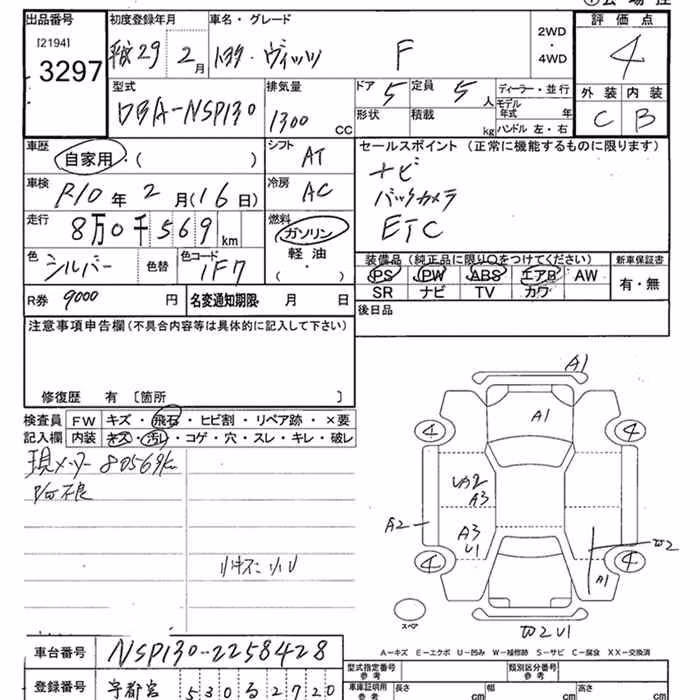 出品番号 初度登録年月 車名・グレード 評価点
[2194]
3297
平成29年2月 トヨタ・ヴィッツ F
2WD
・
4WD
4
外装 内装
C B
型式 排気量 ドア 定員 ディーラー・並行
DBA-NSP130 1300 CC 5 5人
形状 積載 kg
モデル年式 年
ハンドル 左・右
車歴 シフト セールスポイント (正常に機能するものに限ります)
自家用・( ) AT
ナビ
バックカメラ
ETC
車検 冷房
R10年2月(16日) AC
走行 燃料
8万0千569km ガソリン
軽油
・( )
色 シルバー 色替 色コード 1F7
装備品(純正品に限り○をつけてください) 新車保証書
PS PW ABS エアB AW 有・無
SR ナビ TV カワ
R券 9000 円 名変通知期限 月 日
後日品
注意事項申告欄(不具合内容等は具体的に記入して下さい)
修復歴 有 [箇所 ]
検査員 FW キズ・飛石・ヒビ割・リペア跡・×要
記入欄 内装 キズ・汚レ・コゲ・穴・スレ・キレ・破レ
現メーター80569km
A1
A1
4 4
A3
A2
A3
U1
W2
A1
4 4
スペア
W2U1
A-キズ E-エクボ U-凹み W-補修跡 S-サビ C-腐食 XX-交換済
車台番号 NSP130-2258428
型式指定番号 類別区分番号
参考
登録番号 宇都宮 530 る 2720
車庫証明用
参考
長さ cm 幅 cm 高さ cm